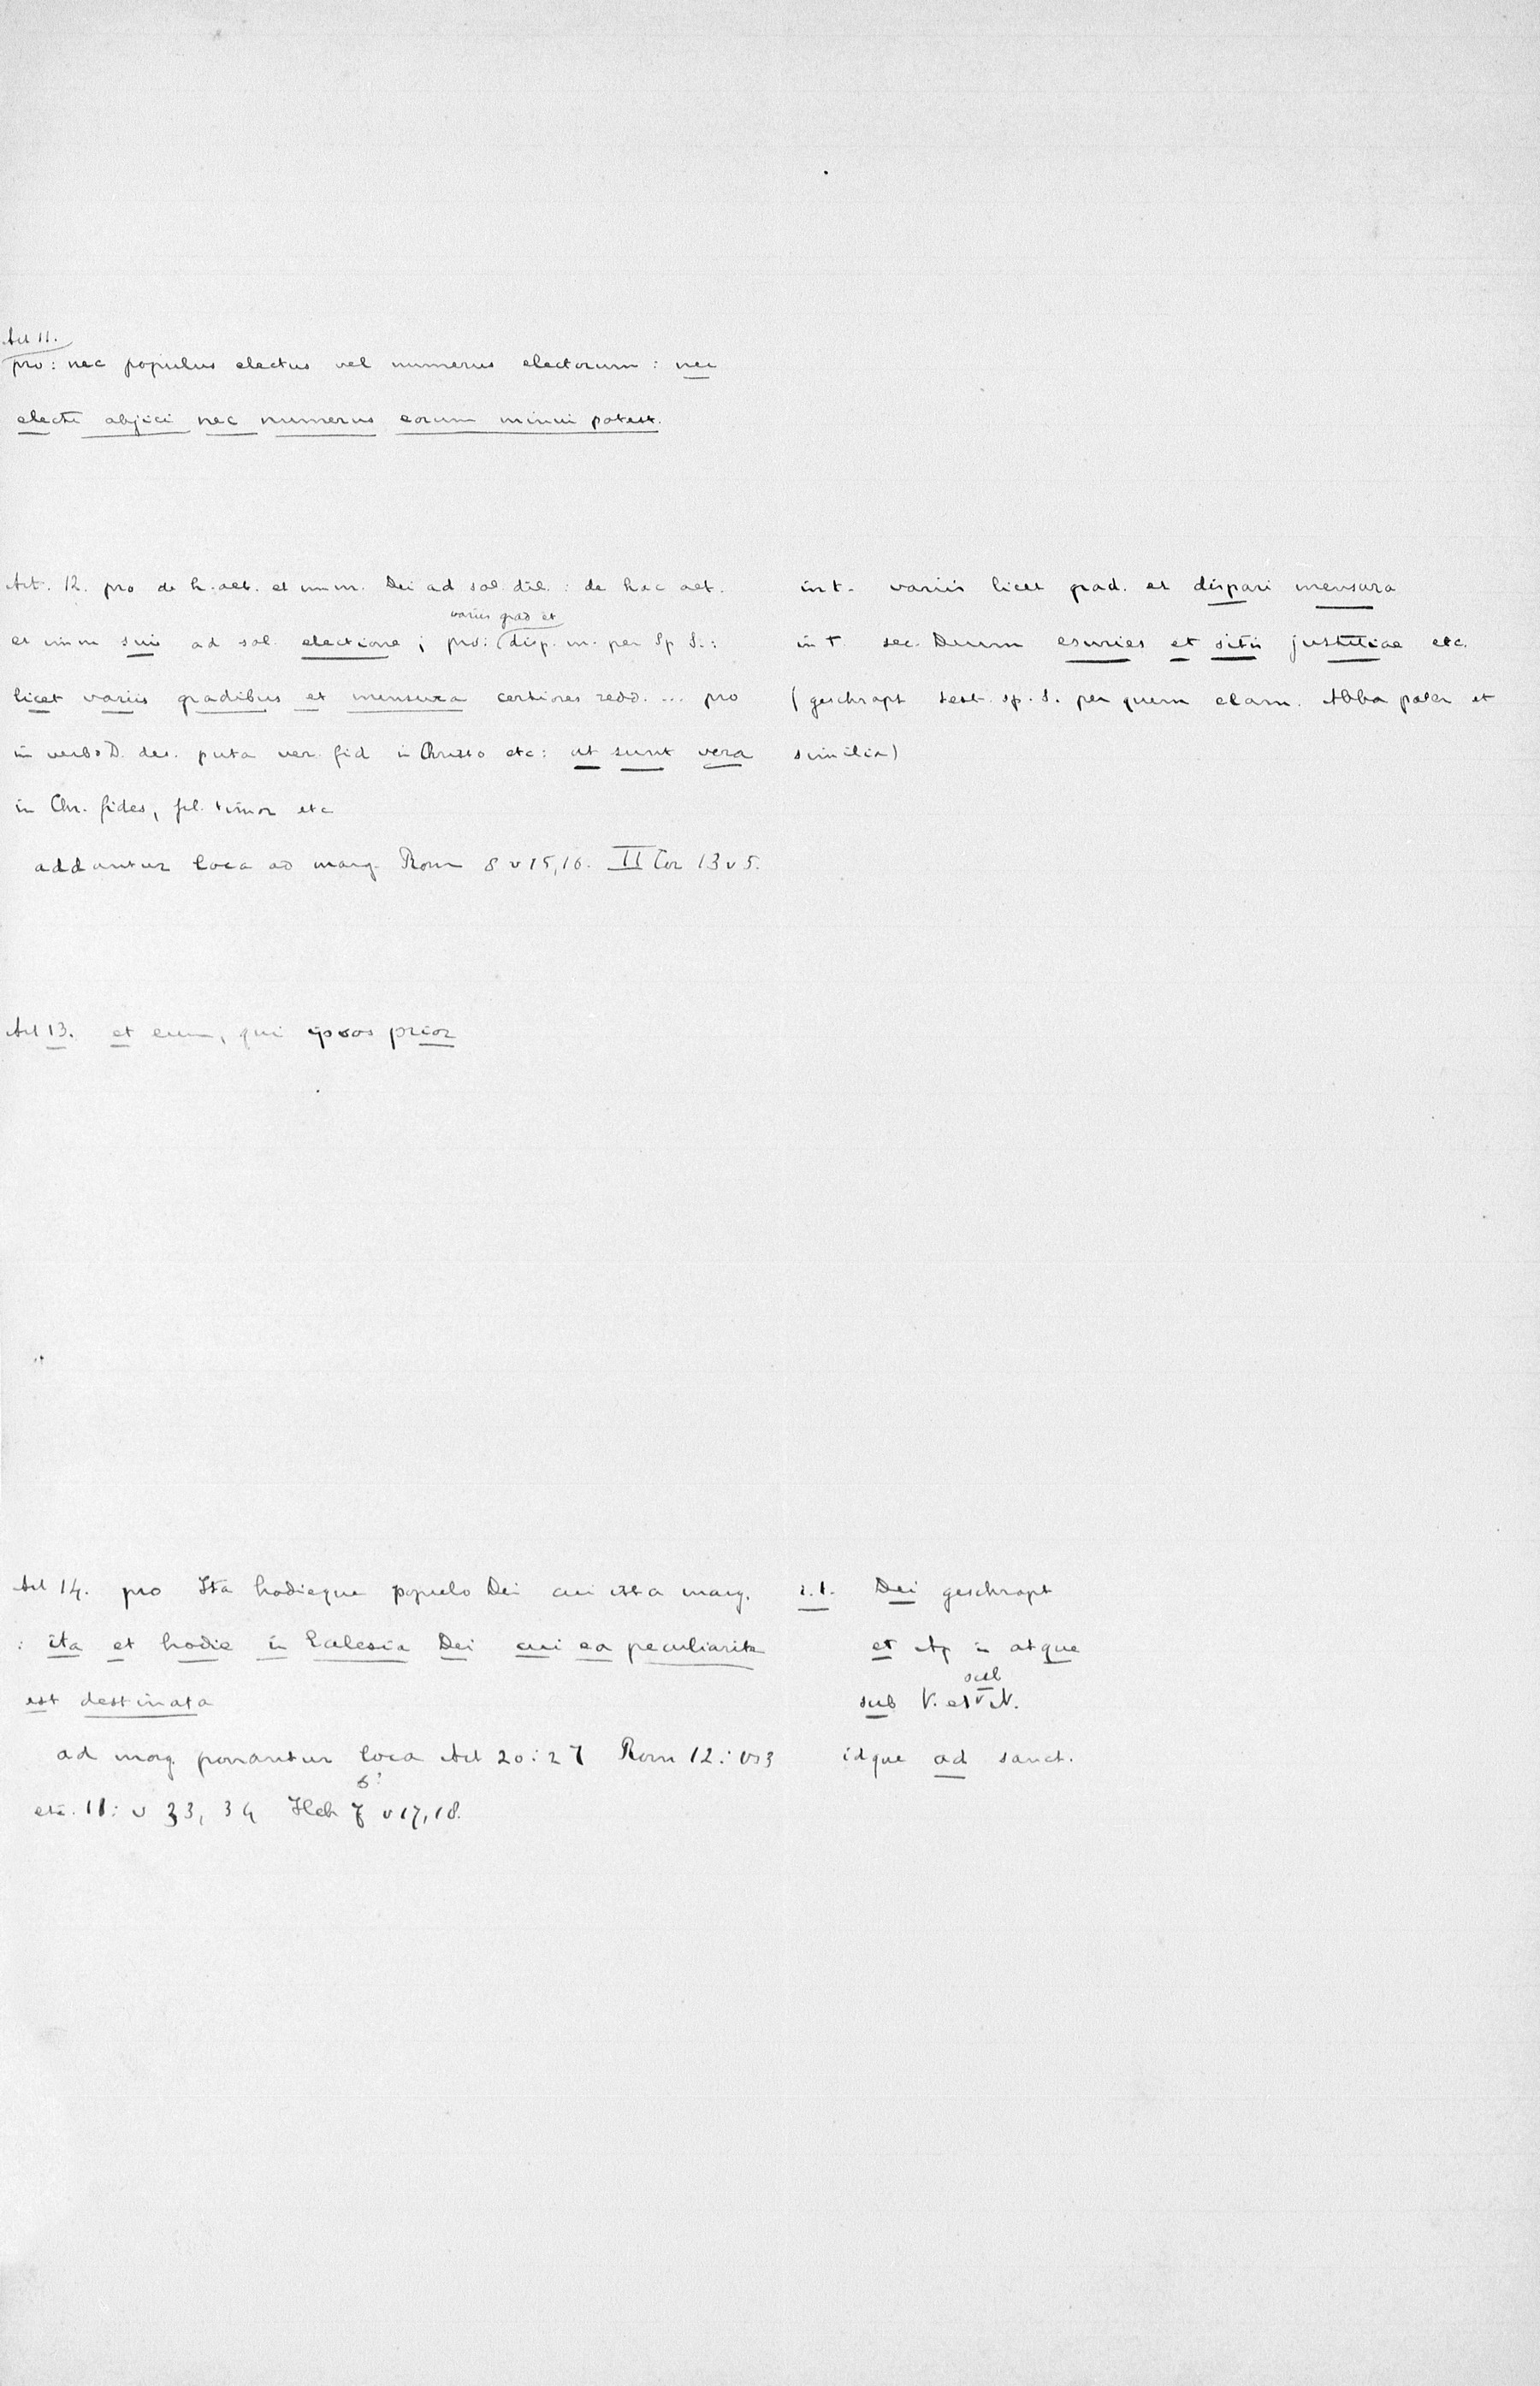 Art 11.
pro: nec populus electus vel numerus electorum: nec
electi abjici nec numerus eorum minui potest.
Art. 12. pro de h. aet. et imm. Dei ad sal. dil.: de hac aet.
varius grad et
et imm sui ad sal. electione; pro: (disp. m. per Sp S.:
licet variis gradibus et mensura certiores redd. ... pro
in verbo D. des. puta ver. fid in Christo etc: ut sunt vera
in Chr. fides, fil. timor etc
addantur loca ad marg. Rom 8 v 15, 16. II Cor 13 v 5.
int. variis licet grad. et dispari mensura
int sec. Deum esuries et sitis justitiae etc.
(geschrapt test. sp. S. per quem clam. Abba pater et
similia)
Art 13. et eum, qui ipsos prior
Art 14. pro Ita hodieque populo Dei cui ista marg.
: ita et hodie in Ecclesia Dei cui ea peculiarite
est destinata
ad marg. ponantur loca Act 20:27 Rom 12: vs 3
6:
etc. 11: v 33, 34 Heb 7 v 17, 18.
i.t. Dei geschrapt
et Ap in atque
sub
sub V. et v N.
idque ad sanct.